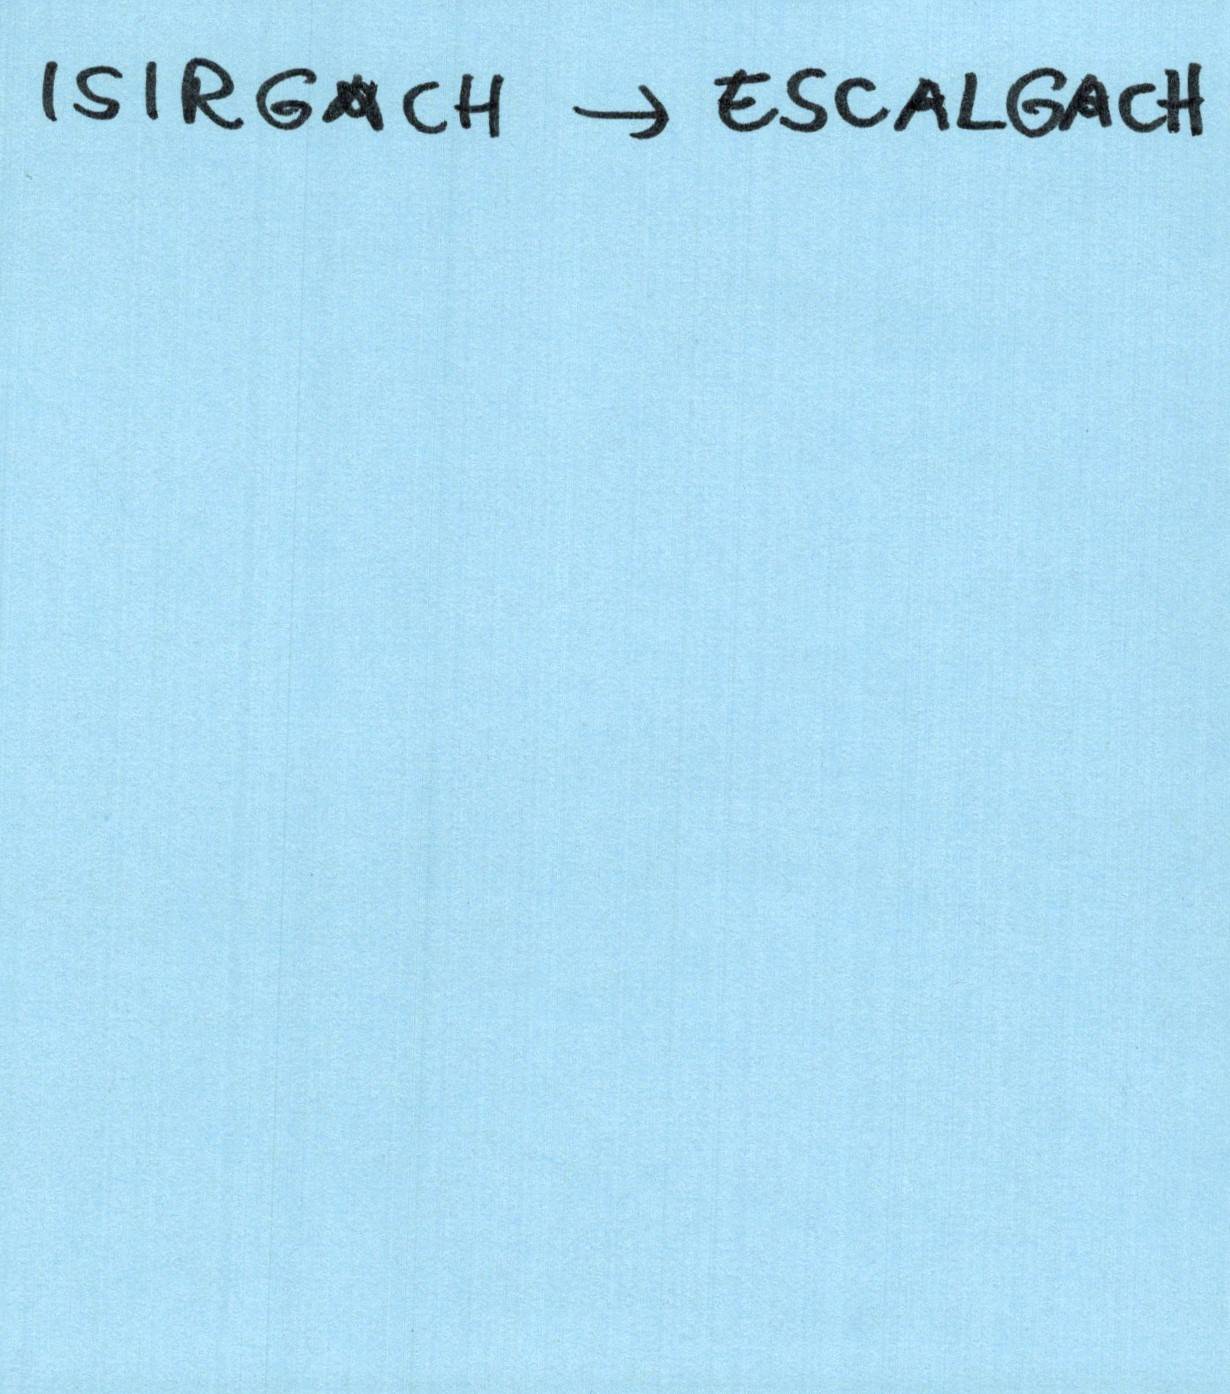 ISIRGACH → ESCALGACH